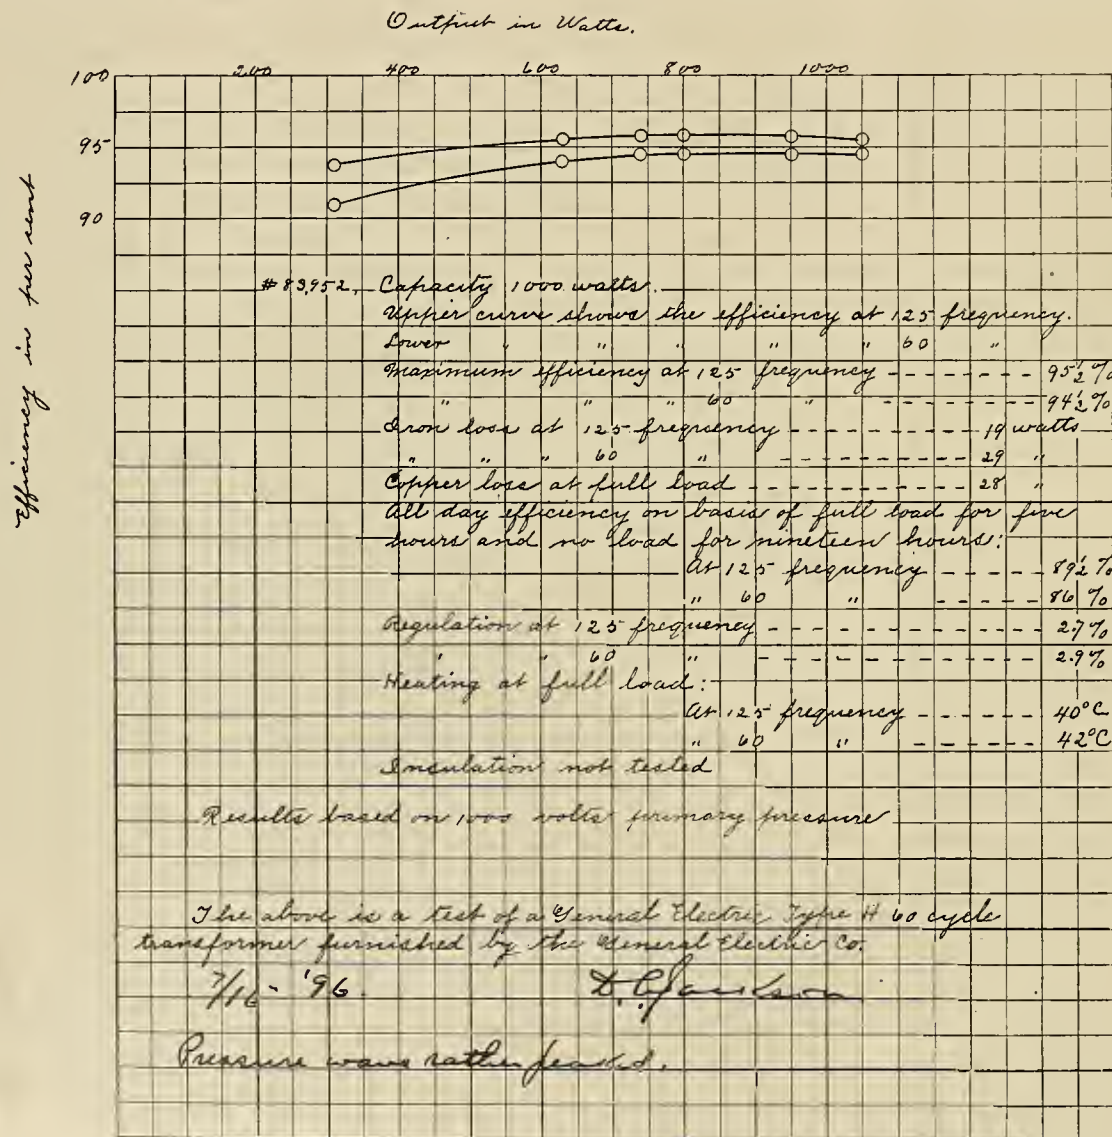 Output in Watts.
200 400 600 800 1000
100
95
90
Efficiency in per cent
#83,952, Capacity 1000 watts.
Upper curve shows the efficiency at 125 frequency.
Lower " " " " " 60 "
Maximum efficiency at 125 frequency - - - - - - 95 1/2 %
" " " 60 " - - - - - - 94 1/2 %
Iron loss at 125 frequency - - - - - - - - - - 19 watts
" " " 60 " - - - - - - - - - - 29 "
Copper loss at full load - - - - - - - - - - 28 "
All day efficiency on basis of full load for five
hours and no load for nineteen hours:
At 125 frequency - - - - - 89 1/2 %
" 60 " - - - - - 86 %
Regulation at 125 frequency - - - - - - - - - - 2.7%
" " 60 " - - - - - - - - - - 2.9%
Heating at full load:
At 125 frequency - - - - - - 40°C
" 60 " - - - - - - 42°C
Insulation not tested
Results based on 1000 volts primary pressure
The above is a test of a General Electric Type H 60 cycle
transformer furnished by the General Electric Co.
7/16 - '96. D. C. Jackson
Pressure wave rather peaked.